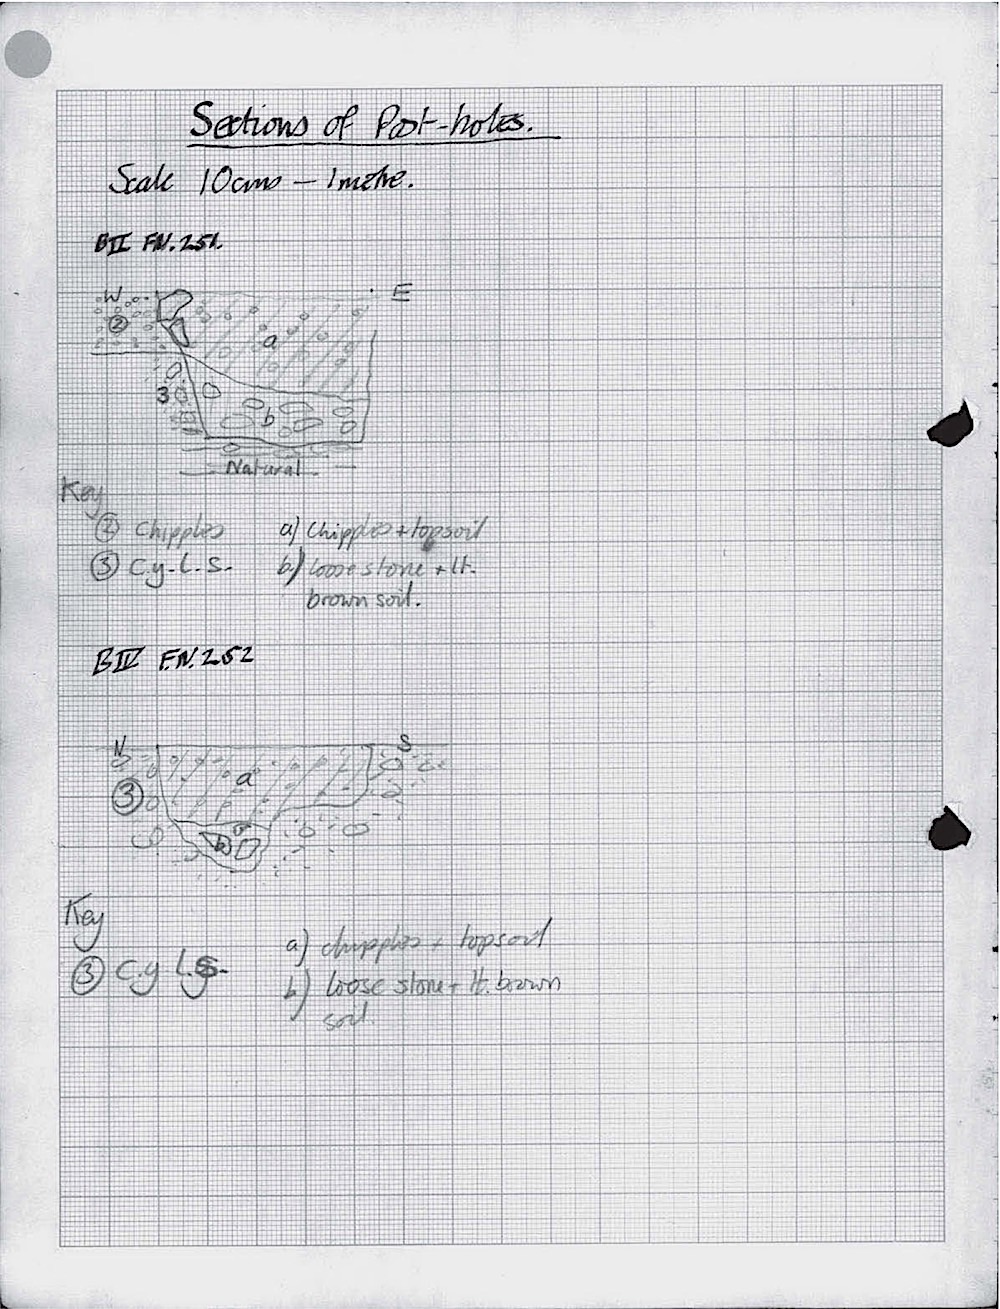 Sections of Post-holes.
Scale 10cms – 1 metre.
BII F.N. 251.
W E
②
a
3
b
Natural
Key
② Chipples a) Chipples + topsoil
③ C.y.L.S. b.) loose stone + lt.
brown soil.
BIV F.N. 252
N S
a
③
b
Key
③ C.y L.S. a) chipples + topsoil
b) loose stone + lt. brown
soil.